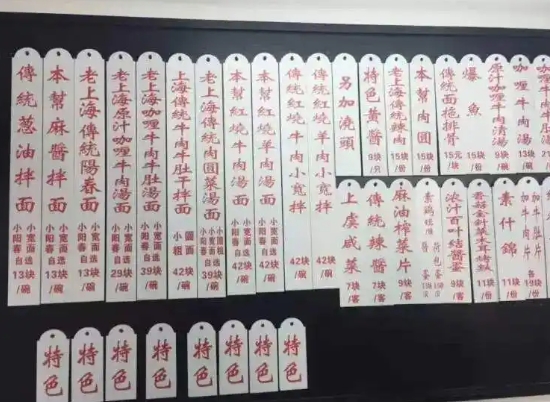 傳統蔥油拌面 小阳春 小宽面 自选 13块/碗
本幫麻醬拌面 小阳春 小宽面 自选 13块/碗
老上海傳統陽春面 小阳春 小宽面 自选 13块/碗
老上海原汁咖喱牛肉湯面 小阳春 小宽面 自选 29块/碗
老上海咖喱牛肉牛肚湯面 小阳春 小宽面 自选 39块/碗
上海傳統牛肉牛肚工拌面 小粗 圆面 42块/碗
老上海傳統肉圓菜湯面 小阳春 自选 39块/碗
本幫紅燒牛肉湯面 小阳春 小宽面 自选 42块/碗
本幫紅燒羊肉湯面 小阳春 小宽面 自选 42块/碗
傳統紅燒牛肉小寬拌 42块/碗
傳統紅燒羊肉小寬拌 42块/碗
另加澆頭
特色黃醬 9块
老上海傳統辣肉 15块/份
本幫肉圓 15块/份
傳統面拖排骨 15元/块
爆魚 15块
原汁咖喱牛肉清湯 9块/碗
咖喱牛肉湯 13块/碗
咖喱牛
上虞咸菜 7块/客
傳統辣醬 7块/客
麻油榨菜片 9块/客
濃汁百叶結醬蛋 9块/客
11块/份
素什錦 11块/份
加牛肉片 加牛肚片 各19块/份
特色
特色
特色
特色
特色
特色
特色
特色